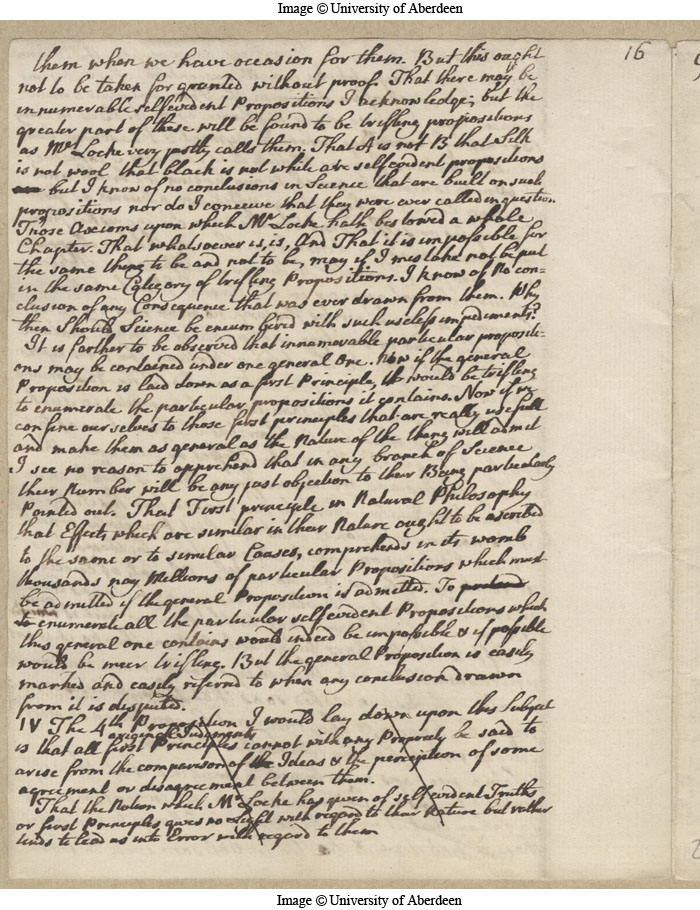 Image © University of Aberdeen
16
them when we have occasion for them. But this ought
not to be taken for granted without proof. That there may be
innumerable selfevident Propositions I acknowledge; but the
greater part of these will be found to be trifling propositions
as Mr Locke very justly calls them. That A is not B that Silk
is not wool that black is not white are selfevident propositions
but I know of no conclusions in Science that are built on such
propositions nor do I conceive that they were ever called in question.
Those Axioms upon which Mr Locke hath bestowed a whole
Chapter. That whatsoever is, is, And That it is impossible for
the same thing to be and not to be, may if I mistake not be put
in the same Category of trifling Propositions. I know of No con-
clusion of any Consequence that was ever drawn from them. Why
then Should Science be encumbered with such useless impediments?
It is farther to be observed that innumerable particular propositi-
ons may be contained under one general One. Now if the general
Proposition is laid down as a first Principle, it would be trifling
to enumerate the particular propositions it contains. Now if we
confine ourselves to those first principles that are really usefull
and make them as general as the Nature of the thing will admit
I see no reason to apprehend that in any branch of Science
their Number will be any just objection to their Being particularly
Pointed out. That First principle in Natural Philosophy
that Effects which are similar in their Nature ought to be ascribed
to the same or to similar Causes, comprehends in its womb
thousands nay Millions of particular Propositions which must
be admitted if the general Proposition is admitted. To pretend
to enumerate all the particular selfevident Propositions which
this general one contains would indeed be impossible & if possible
would be meer trifling. But the general Proposition is easily
marked and easily referred to when any conclusion drawn
from it is disputed.
IV The 4th Proposition I would lay down upon this Subject
original Judgments
is that all first Principles cannot with any Propriety be said to
arise from the comparison of the Ideas & the perception of some
agreement or disagreement between them.
That the Notion which Mr Locke has given of selfevident Truths
or first Principles gives no Light with regard to their Nature but rather
tends to lead us into Error with regard to them
Image © University of Aberdeen